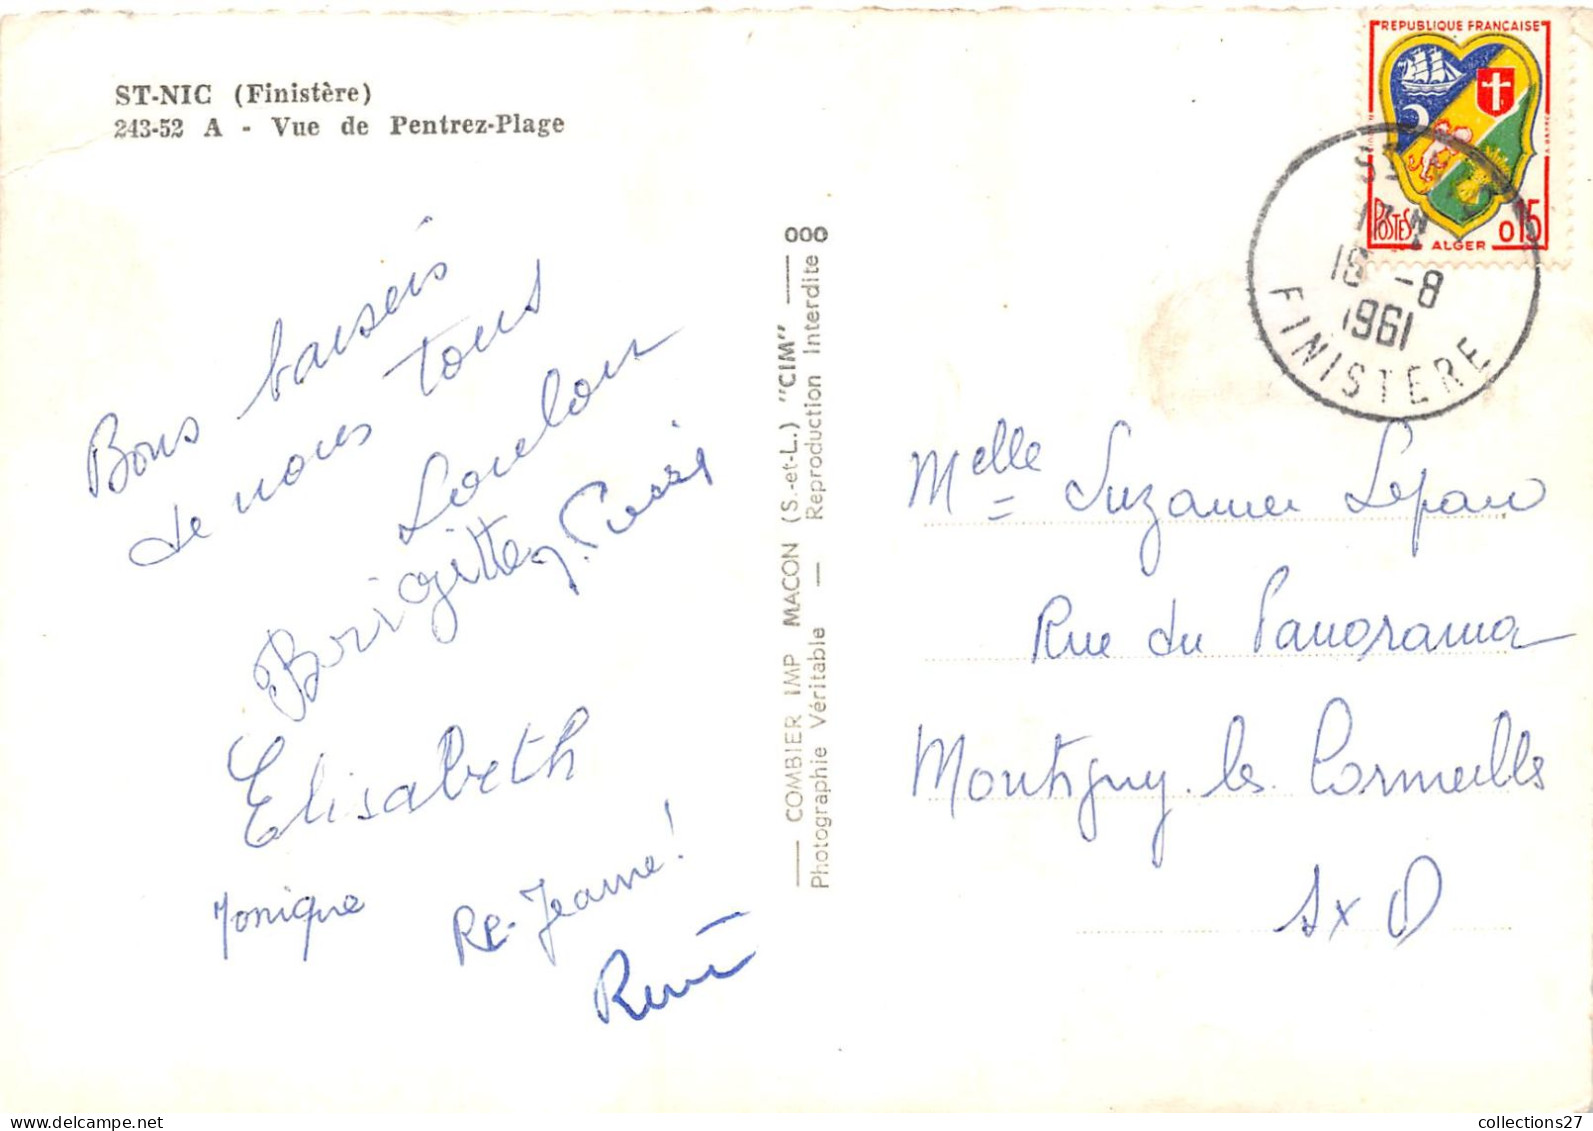 ST-NIC (Finistère)
243-52 A - Vue de Pentrez-Plage
Bons baisers
de nous tous
Loulou
Brigitte
Elisabeth
Monique
Re-Jeanne!
René
000
COMBIER IMP MACON (S.-et-L.) "CIM"
Photographie Véritable — Reproduction Interdite
REPUBLIQUE FRANÇAISE
POSTES
ALGER
0,15
18 -8
1961
FINISTERE
Melle Suzanne Lepan
Rue du Panorama
Montigny les Cormeilles
SxO
collections27